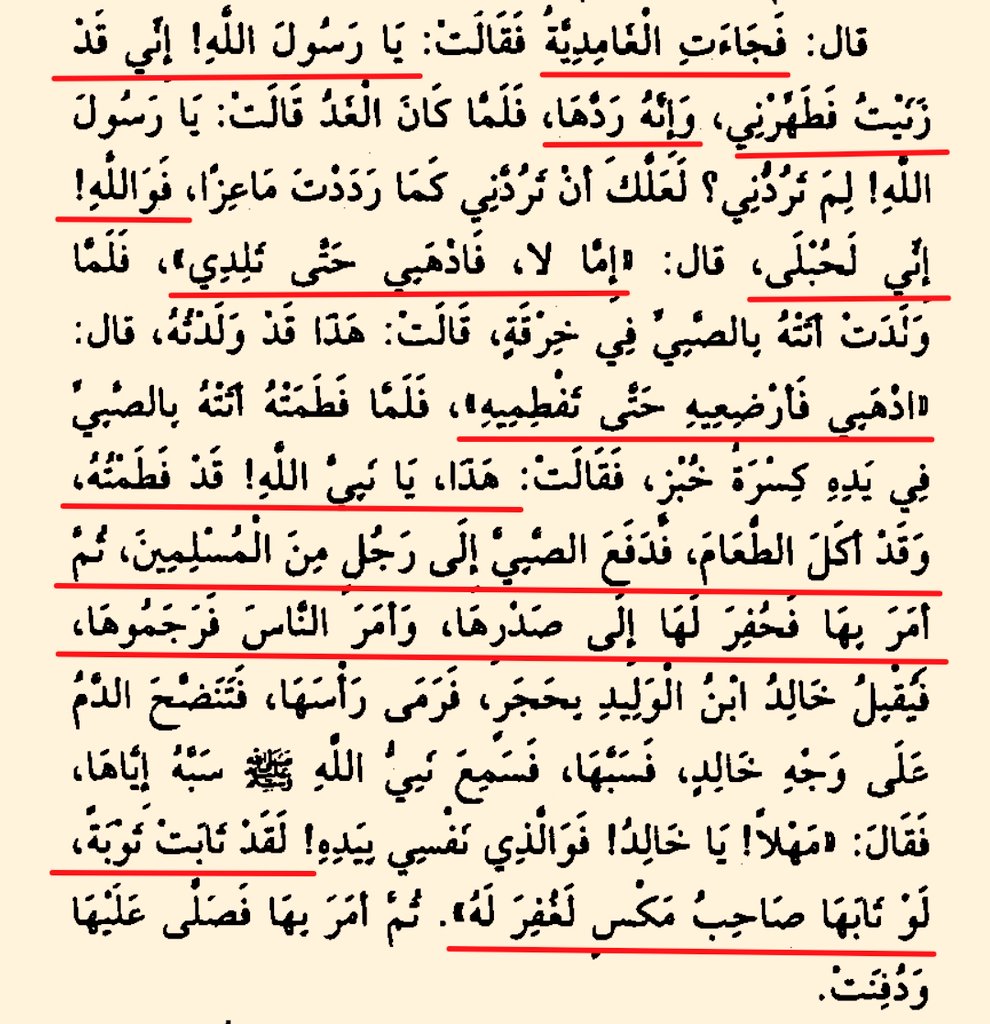 قال: فَجَاءَتِ الْغَامِدِيَّةُ فَقَالَتْ: يَا رَسُولَ اللَّهِ! إِنِّي قَدْ
زَنَيْتُ فَطَهِّرْنِي، وَإِنَّهُ رَدَّهَا، فَلَمَّا كَانَ الْغَدُ قَالَتْ: يَا رَسُولَ
اللَّهِ! لِمَ تَرُدُّنِي؟ لَعَلَّكَ أَنْ تَرُدَّنِي كَمَا رَدَدْتَ مَاعِزًا، فَوَاللَّهِ!
إِنِّي لَحُبْلَى، قال: «إِمَّا لا، فَاذْهَبِي حَتَّى تَلِدِي»، فَلَمَّا
وَلَدَتْ أَتَتْهُ بِالصَّبِيِّ فِي خِرْقَةٍ، قَالَتْ: هَذَا قَدْ وَلَدْتُهُ، قال:
«اذْهَبِي فَأَرْضِعِيهِ حَتَّى تَفْطِمِيهِ»، فَلَمَّا فَطَمَتْهُ أَتَتْهُ بِالصَّبِيِّ
فِي يَدِهِ كِسْرَةُ خُبْزٍ، فَقَالَتْ: هَذَا، يَا نَبِيَّ اللَّهِ! قَدْ فَطَمْتُهُ،
وَقَدْ أَكَلَ الطَّعَامَ، فَدَفَعَ الصَّبِيَّ إِلَى رَجُلٍ مِنَ الْمُسْلِمِينَ، ثُمَّ
أَمَرَ بِهَا فَحُفِرَ لَهَا إِلَى صَدْرِهَا، وَأَمَرَ النَّاسَ فَرَجَمُوهَا،
فَيُقْبِلُ خَالِدُ ابْنُ الْوَلِيدِ بِحَجَرٍ، فَرَمَى رَأْسَهَا، فَتَنَضَّحَ الدَّمُ
عَلَى وَجْهِ خَالِدٍ، فَسَبَّهَا، فَسَمِعَ نَبِيُّ اللَّهِ ﷺ سَبَّهُ إِيَّاهَا،
فَقَالَ: «مَهْلاً! يَا خَالِدُ! فَوَالَّذِي نَفْسِي بِيَدِهِ! لَقَدْ تَابَتْ تَوْبَةً،
لَوْ تَابَهَا صَاحِبُ مَكْسٍ لَغُفِرَ لَهُ». ثُمَّ أَمَرَ بِهَا فَصَلَّى عَلَيْهَا
وَدُفِنَتْ.